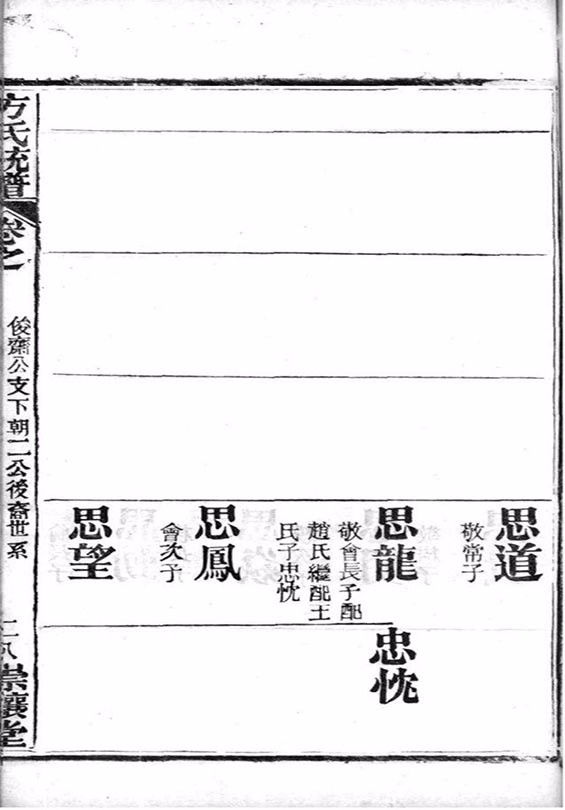 思道
敬常子
思龍
敬會長子配
趙氏繼配王
氏子忠忱
思鳳
會次子
思望
忠忱
方氏統譜
卷之
俊齋公支下朝二公後裔世系
二八
崇讓堂